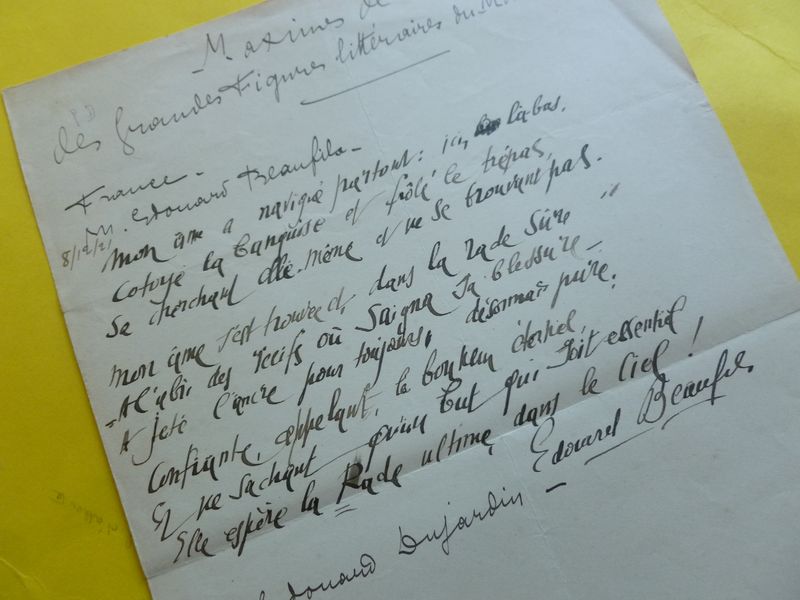 Maximes de
des Grandes Figures littéraires du M
France -
M. Edouard Beaufils -
8/12/21
mon âme a navigué partout : ici, là-bas,
Cotoyé la banquise et frôlé le trépas,
Se cherchant elle-même et ne se trouvant pas.
mon âme s'est trouvée et, dans la rade sûre
A l'abri des récifs où saigna sa blessure -
A jeté l'ancre pour toujours, désormais pure.
Confiante, appelant, le bonheur éternel,
Et ne sachant qu'un but qui soit essentiel
Elle espère la Rade ultime, dans le Ciel !
Edouard Beaufils
Edouard Dujardin -